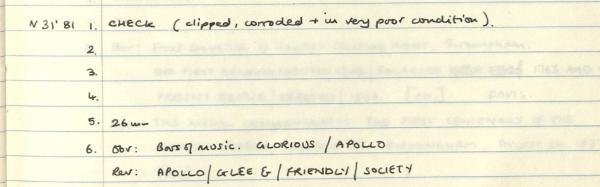 N 31' 81 1. CHECK (clipped, corroded + in very poor condition).
2.
3.
4.
5. 26mm
6. Obv: Bars of music. GLORIOUS / APOLLO
Rev: APOLLO / GLEE & / FRIENDLY / SOCIETY